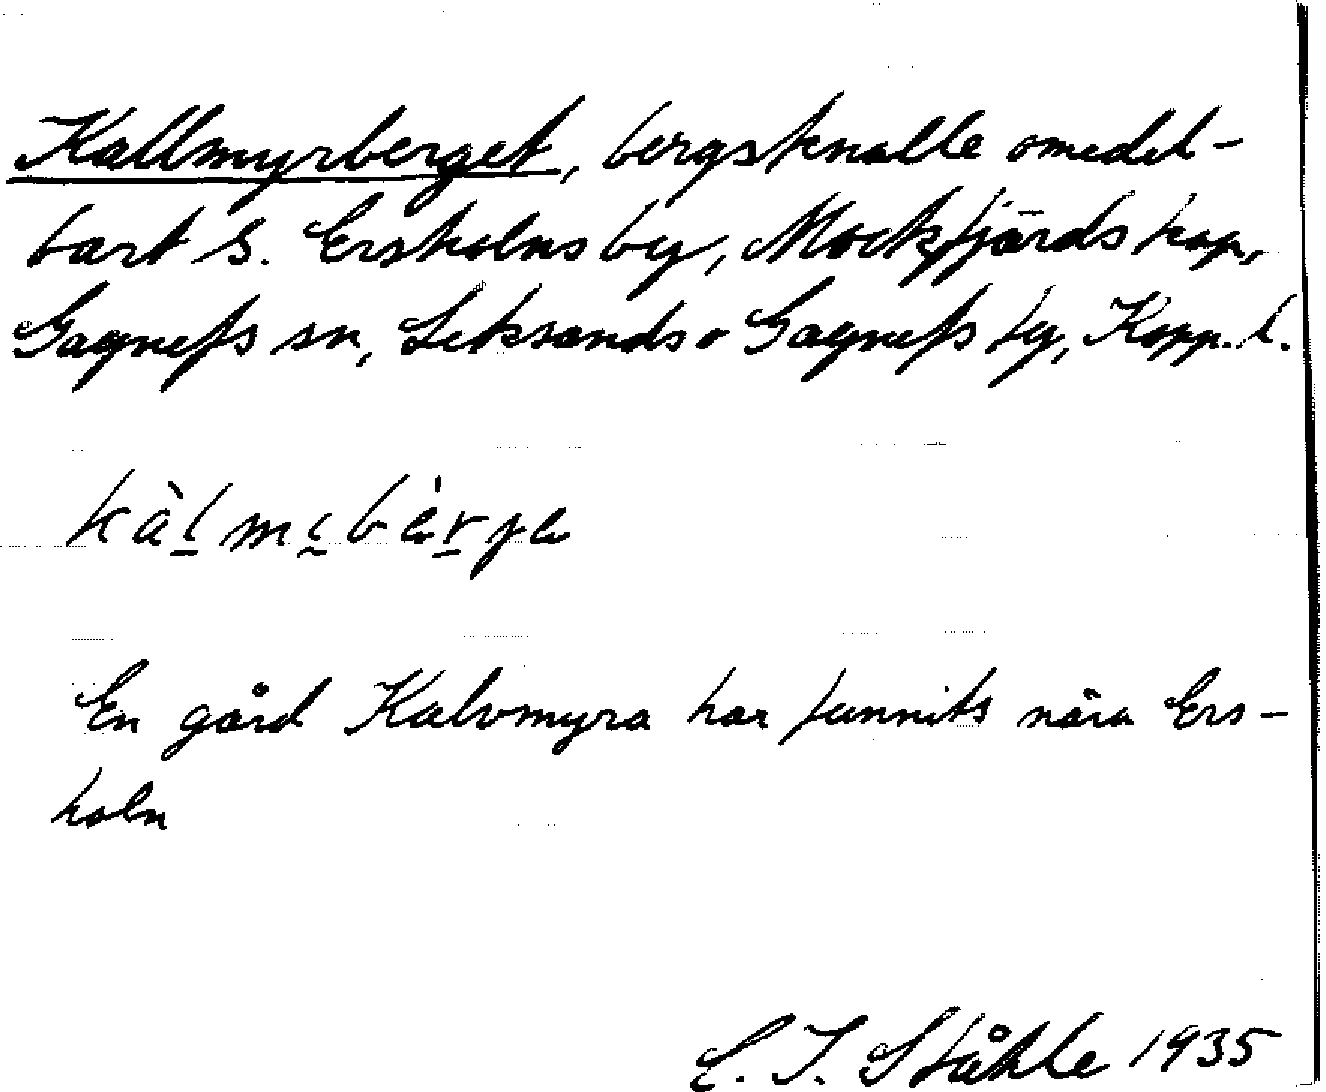 Kallmyrberget, bergsknalle omedel-
bart S. Ersholns by, Mockfjärds kap.,
Gagnefs sn, Leksands o Gagnefs tg, Kopp. l.
kàlmɩbèrje
En gård Kalvmyra har funnits nära Ers-
holn
C. I. Ståhle 1935